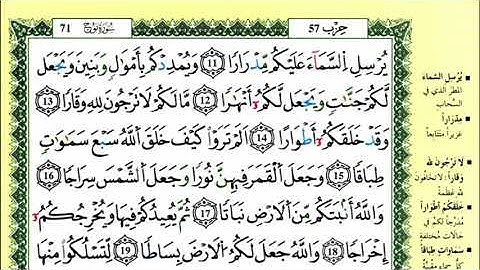 سُورَةُ نُوحٍ 71
حِزْب 57
يُرْسِلِ السَّمَآءَ عَلَيْكُم مِّدْرَارًا 11 وَيُمْدِدْكُم بِأَمْوَٰلٍ وَبَنِينَ وَيَجْعَل
لَّكُمْ جَنَّٰتٍ وَيَجْعَل لَّكُمُۥٓ أَنْهَٰرًا 12 مَّا لَكُمْ لَا تَرْجُونَ لِلهِ وَقَارًا 13
وَقَدْ خَلَقَكُمُۥٓ أَطْوَارًا 14 أَلَمْ تَرَوْاْ كَيْفَ خَلَقَ اَللَّهُ سَبْعَ سَمَٰوَٰتٍ
طِبَاقًا 15 وَجَعَلَ اَلْقَمَرَ فِيهِنَّ نُورًا وَجَعَلَ اَلشَّمْسَ سِرَاجًا 16
وَاللَّهُ أَنۢبَتَكُم مِّنَ اَلْأَرْضِ نَبَاتًا 17 ثُمَّ يُعِيدُكُمْ فِيهَا وَيُخْرِجُكُمُۥٓ
إِخْرَاجًا 18 وَاللَّهُ جَعَلَ لَكُمُ اُلْأَرْضَ بِسَاطًا 19 لِّتَسْلُكُواْ مِنْهَا
يُرْسِلِ السَّمَاءَ
المطر الذي في
السَّحاب
مِدْرَاراً
غزيراً متتابعاً
لا تَرْجُونَ لِلهِ
وَقَاراً: لا تخافون
لله عظمة
خَلَقَكُمْ أَطْوَاراً
مُدَرِّجاً لكم في
حالات مختلفة
سَمَاوَاتٍ طِبَاقاً